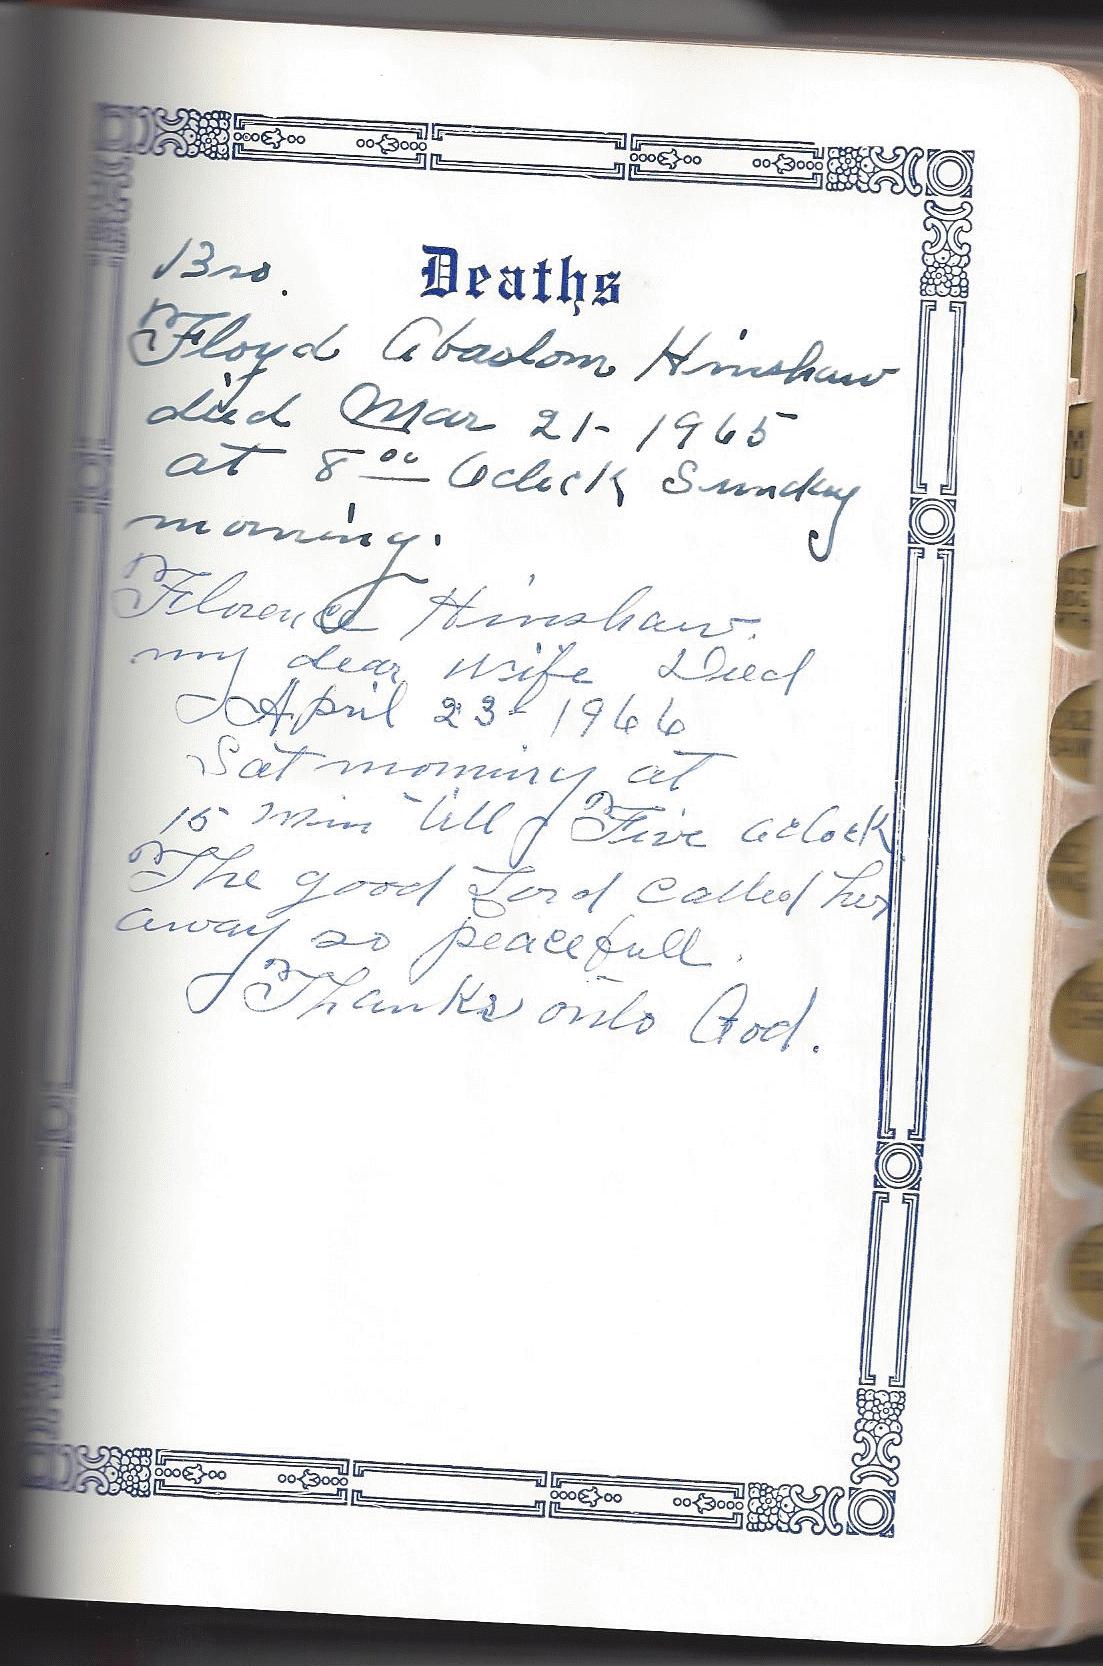 Deaths
Bro.
Floyd Abaslom Hinshaw
died Mar 21-1965
at 8 00 Oclock Sunday
morning.
Florence Hinshaw.
my dear wife Died
April 23-1966
Sat morning at
15 min till Five Oclock
The good Lord called her
away so peacefull.
Thanks onto God.